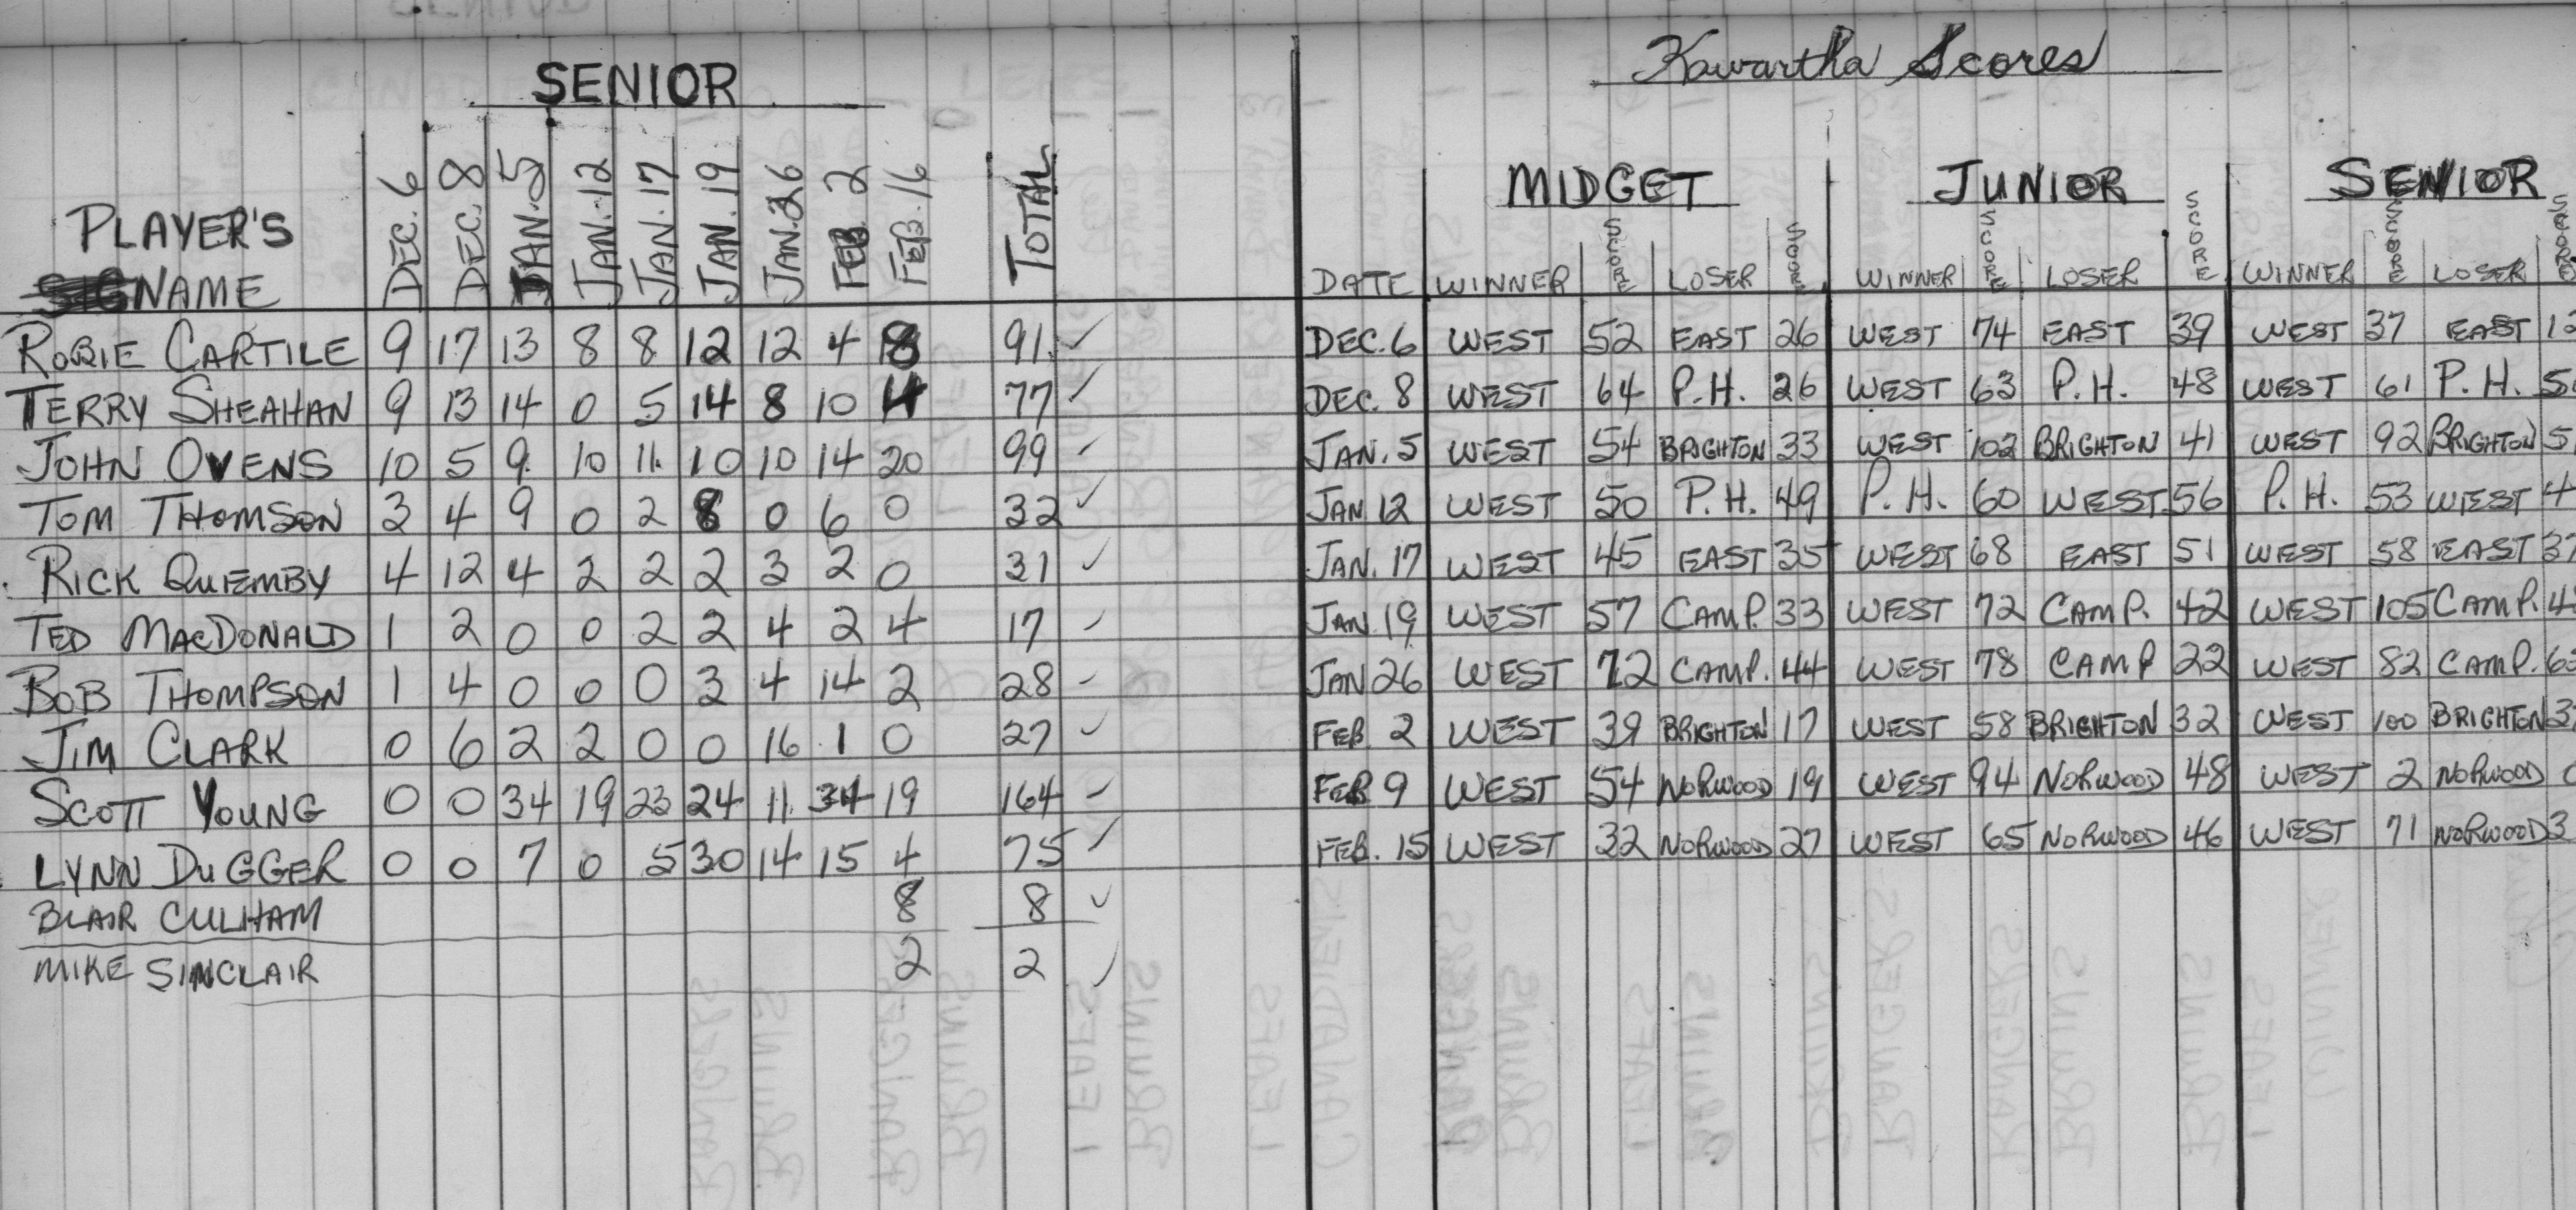 SENIOR
PLAYER'S NAME DEC. 6 DEC. 8 JAN. 5 JAN. 12 JAN. 17 JAN. 19 JAN. 26 FEB. 2 FEB. 16 TOTAL
ROBIE CARTILE 9 17 13 8 8 12 12 4 8 91 ✓
TERRY SHEAHAN 9 13 14 0 5 14 8 10 4 77 ✓
JOHN OVENS 10 5 9 10 11 10 10 14 20 99 ✓
TOM THOMSON 3 4 9 0 2 8 0 6 0 32 ✓
RICK QUEMBY 4 12 4 2 2 2 3 2 0 31 ✓
TED MACDONALD 1 2 0 0 2 2 4 2 4 17 ✓
BOB THOMPSON 1 4 0 0 0 3 4 14 2 28 ✓
JIM CLARK 0 6 2 2 0 0 16 1 0 27 ✓
SCOTT YOUNG 0 0 34 19 23 24 11 34 19 164 ✓
LYNN DUGGER 0 0 7 0 5 30 14 15 4 75 ✓
BLAIR CULHAM 8 8 ✓
MIKE SINCLAIR 2 2 ✓
Kawartha Scores
MIDGET JUNIOR SENIOR
DATE WINNER SCORE LOSER SCORE WINNER SCORE LOSER SCORE WINNER SCORE LOSER SCORE
DEC. 6 WEST 52 EAST 26 WEST 74 EAST 39 WEST 37 EAST
DEC. 8 WEST 64 P.H. 26 WEST 63 P.H. 48 WEST 61 P.H.
JAN. 5 WEST 54 BRIGHTON 33 WEST 102 BRIGHTON 41 WEST 92 BRIGHTON
JAN. 12 WEST 50 P.H. 49 P.H. 60 WEST 56 P.H. 53 WEST
JAN. 17 WEST 45 EAST 35 WEST 68 EAST 51 WEST 58 EAST 37
JAN. 19 WEST 57 CAMP. 33 WEST 72 CAMP. 42 WEST 105 CAMP.
JAN 26 WEST 72 CAMP. 44 WEST 78 CAMP 22 WEST 82 CAMP.
FEB. 2 WEST 39 BRIGHTON 17 WEST 58 BRIGHTON 32 WEST 100 BRIGHTON
FEB 9 WEST 54 NORWOOD 19 WEST 94 NORWOOD 48 WEST 2 NORWOOD
FEB. 15 WEST 32 NORWOOD 27 WEST 65 NORWOOD 46 WEST 71 NORWOOD